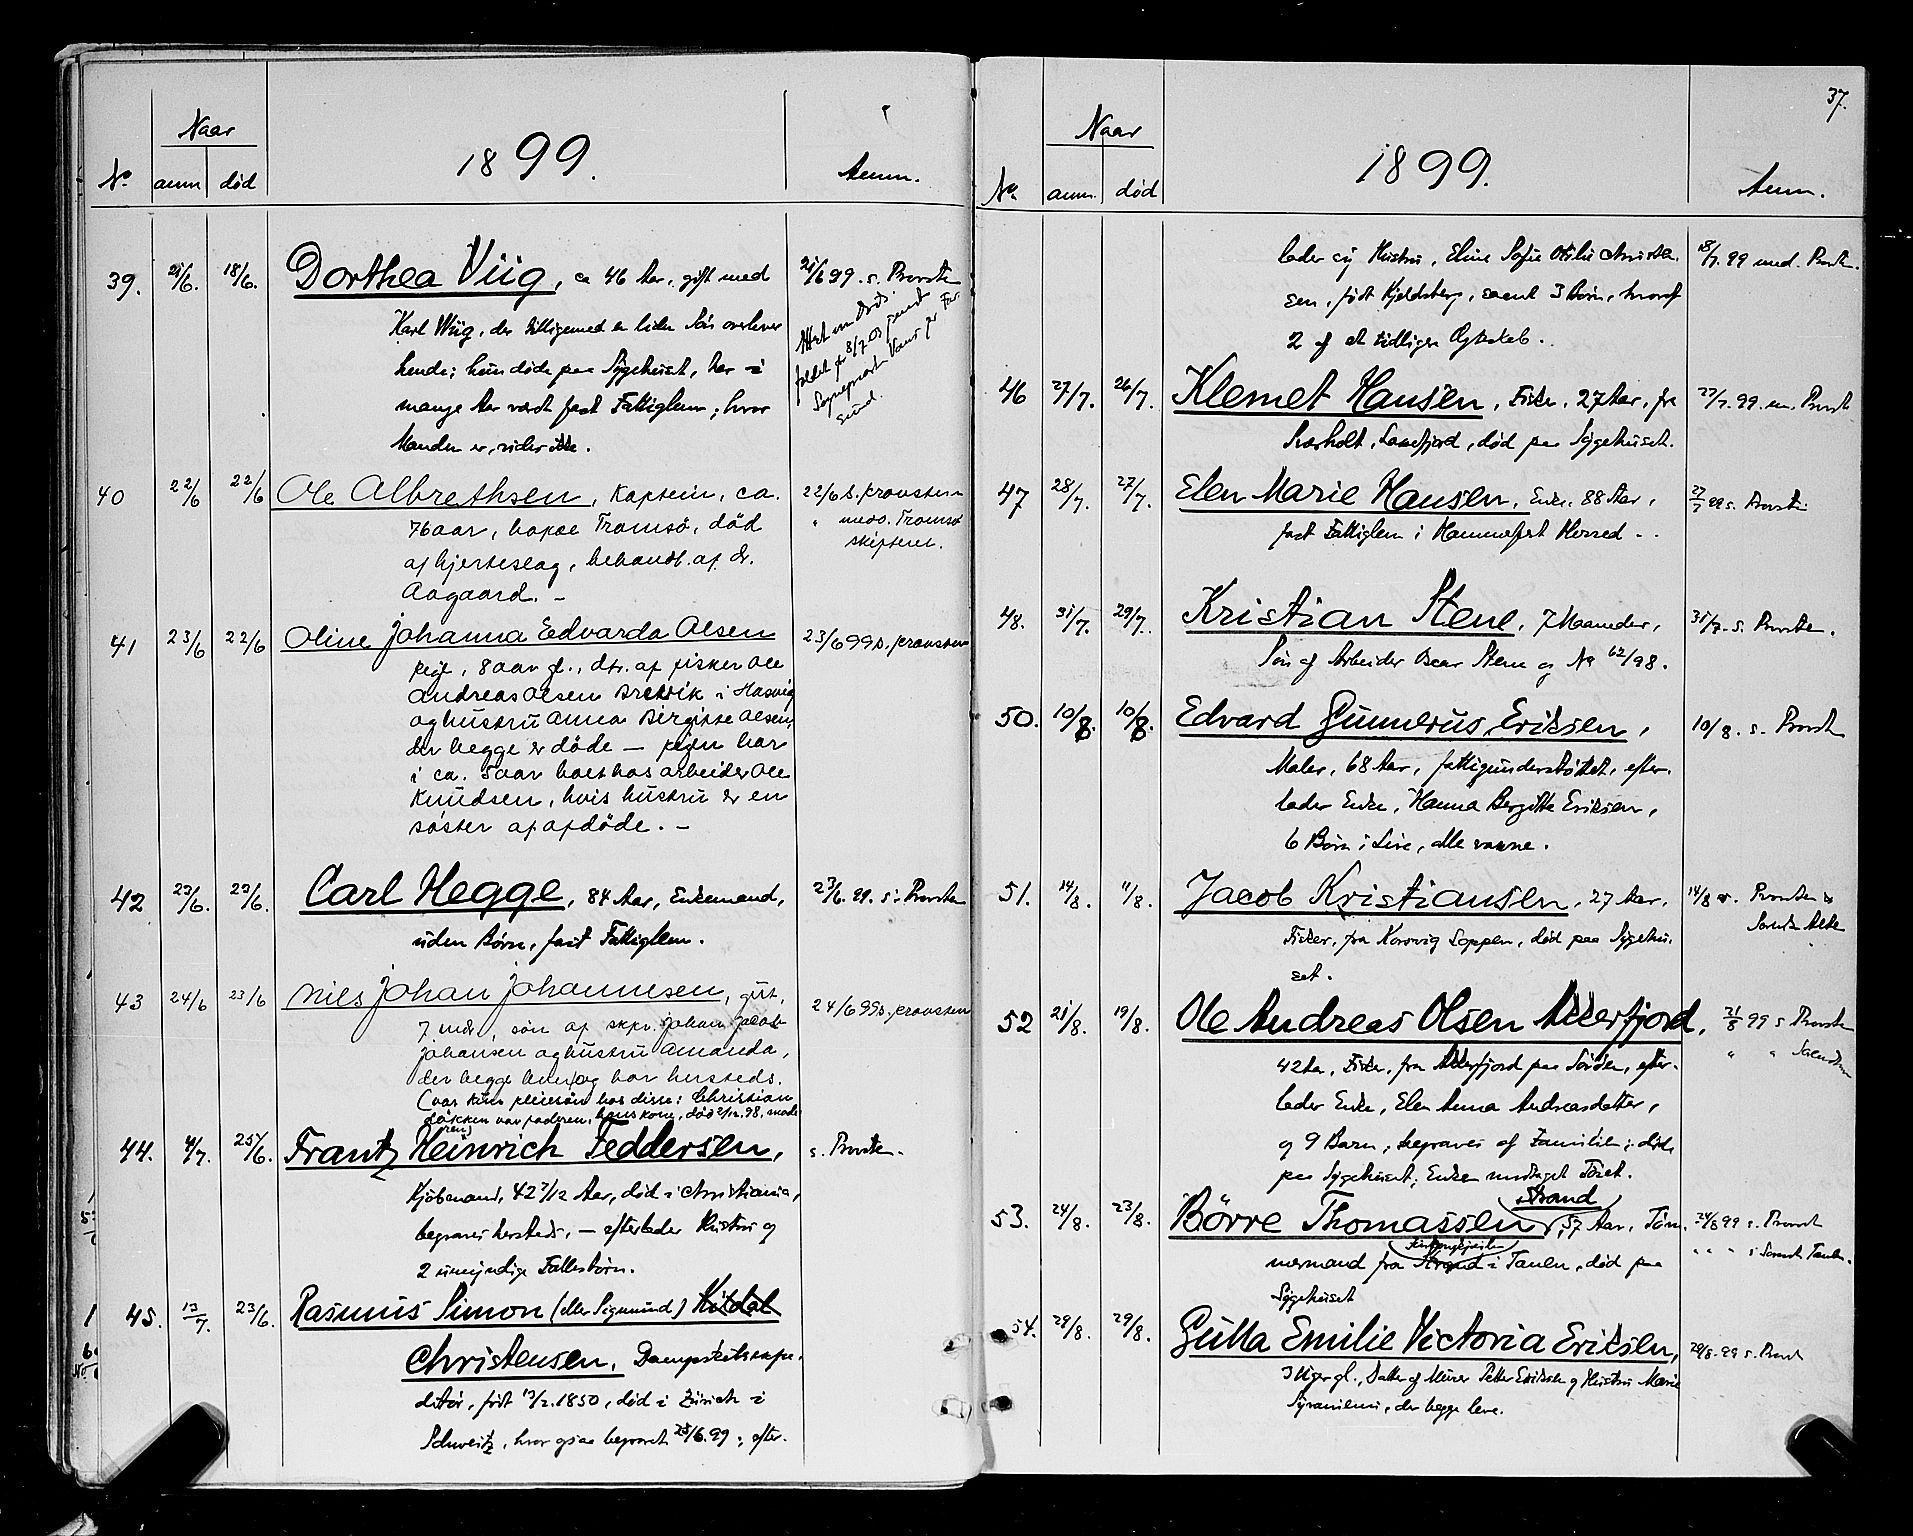 Naar
1899.
No. anm død Anm.
39. 21/6. 18/6. Dorthea Viig, ca 46 Aar, gift med 21/6 99. s. Provsten
Karl Wiig, der tilligemed en liden Søn overlever
hende; hun døde paa Sygehuset, har i
mange Aar været fast Fattiglem; hvor
Manden er, vides ikke.
Attest om Død
8/7 03
Sognepræst
40 22/6 22/6 Ole Albrethsen, kaptein, ca. 22/6 s. provsten
76 aar, Tromsø, død " Tromsø
af hjerteslag, behandl. af dr. skifteret.
Aagaard. –
41 23/6 22/6 Oline Johanna Edvarda Olsen 23/6 99 s. provsten
pige, 8 aar gl., dtr. af fisker Ole
Andreas Olsen i Hasvig
og hustru Anna Birgitte Olsen,
der begge er døde – pigen har
i ca. 5 aar hos arbeider Ole
Knudsen, hvis hustru er en
søster af afdøde. –
42 23/6. 23/6. Carl Hegge, 84 Aar, Enkemand, 23/6. 99. s. Provsten
uden Børn, fast Fattiglem.
43 24/6 23/6 Nils Johan Johannesen, gut, 24/6 99 s. provsten
7 mdr., søn af skpr. Johan
Johansen og hustru Amanda,
der begge lever og bor hersteds.
(var kun pleiesøn hos disse: Christian
var faderen, hans kone, død 98, mode-
ren)
44. 4/7. 25/6. Frantz Heinrich Feddersen, s. Provsten.
Kjøbmand, 42 7/12 Aar, død i Christiania,
begraves hersteds, – efterlader Hustru og
2 umyndige Fællesbørn.
45. 13/7. 23/6. Rasmus Simon (eller Sigmund)
Christensen, Dampskibsexpe-
ditør, født 1850, død i Zürich i
Schweitz, hvor ogsaa begravet 25/6. 99; efter-
37.
Naar
1899.
No. anm. død Anm.
lader sig Hustru, Eline Sofie Otilie Christen- 18/7. 99 und. Provsten.
sen, født Kjeldsberg, samt 3 Børn, hvoraf
2 af et tidligere Ægteskab.
46 27/7. 26/7. Klemet Hansen, Fisker, 27 Aar, fra 27/7. 99. Provst
Sværholt, Laxefjord, død paa Sygehuset.
47 28/7. 27/7. Elen Marie Hansen, Enke, 88 Aar, 27/7 99 s. Provsten
fast Fattiglem i Hammerfest Herred –
48. 31/7. 29/7. Kristian Stene, 7 Maaneder, 31/7. s. Provsten.
Søn af Arbeider Oscar Stene og No 62/98.
50. 10/8. 10/8. Edvard Gunnerus Eriksen, 10/8. s. Provst
Maler, 68 Aar, fattigunderstøttet, efter-
lader Enke, Hanna Bergitte Eriksen,
6 Børn i Live, alle voxne.
51. 14/8. 11/8. Jacob Kristiansen, 27 Aar, 14/8 Provsten &
Fisker, fra Loppen, død paa Sygehu-
set.
52 21/8. 19/8. Ole Andreas Olsen Akkerfjord, 21/8 99 s Provsten
42 Aar, Fisker, fra Akkerfjord paa Sørøen, efter-
lader Enke, Elen Anna Andreasdatter,
og 9 Børn, begraves af Familien; død
paa Sygehuset; Enken modtaget Tøiet.
53. 24/8. 23/8. Børre Thomassen Strand, 57 Aar, Tøm- 24/8 99 s. Provst
mermand fra Strand i Tanen, død paa " " " Tanen.
Sygehuset
54. 29/8. 29/8. Gulla Emilie Victoria Eriksen, 29/8. 99 s. Provst
3 Uger gl., Datter af Murer Petter Eriksen og Hustru Marie
der begge leve.